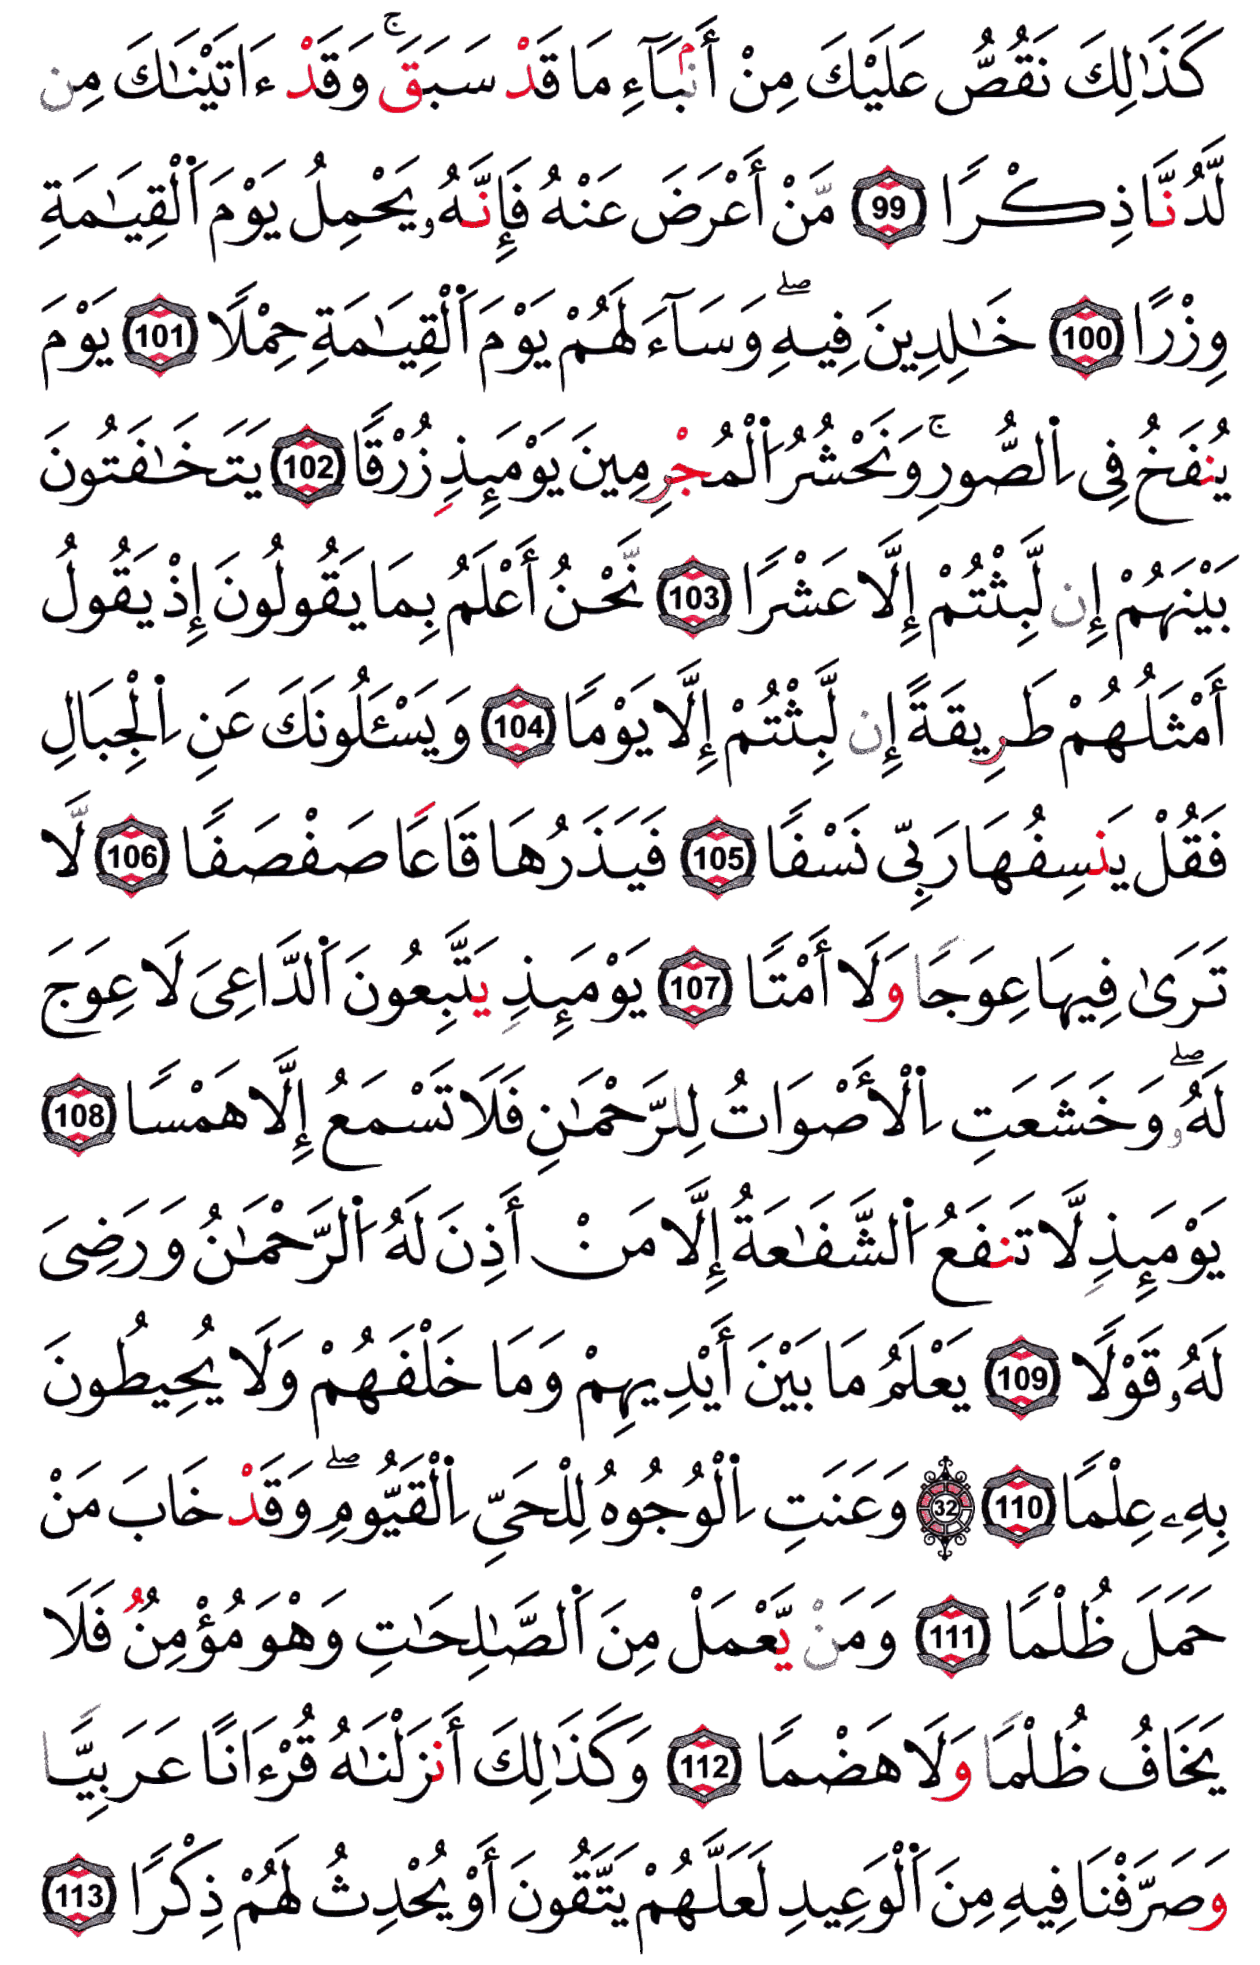 كَذَٰلِكَ نَقُصُّ عَلَيْكَ مِنْ أَنۢبَآءِ مَا قَدْ سَبَقَ ۚ وَقَدْ ءَاتَيْنَٰكَ مِن
لَّدُنَّا ذِكْرًا 99 مَّنْ أَعْرَضَ عَنْهُ فَإِنَّهُۥ يَحْمِلُ يَوْمَ اَ۬لْقِيَٰمَةِ
وِزْرًا 100 خَٰلِدِينَ فِيهِ ۖ وَسَآءَ لَهُمْ يَوْمَ اَ۬لْقِيَٰمَةِ حِمْلًا 101 يَوْمَ
يُنفَخُ فِى اِ۬لصُّورِ ۚ وَنَحْشُرُ اُ۬لْمُجْرِمِينَ يَوْمَئِذٍ زُرْقًا 102 يَتَخَٰفَتُونَ
بَيْنَهُمْ إِن لَّبِثْتُمْ إِلَّا عَشْرًا 103 نَّحْنُ أَعْلَمُ بِمَا يَقُولُونَ إِذْ يَقُولُ
أَمْثَلُهُمْ طَرِيقَةً إِن لَّبِثْتُمْ إِلَّا يَوْمًا 104 وَيَسْـَٔلُونَكَ عَنِ اِ۬لْجِبَالِ
فَقُلْ يَنسِفُهَا رَبِّى نَسْفًا 105 فَيَذَرُهَا قَاعًا صَفْصَفًا 106 لَّا
تَرَىٰ فِيهَا عِوَجًا وَلَا أَمْتًا 107 يَوْمَئِذٍ يَتَّبِعُونَ اَ۬لدَّاعِىَ لَا عِوَجَ
لَهُۥ ۖ وَخَشَعَتِ اِ۬لْأَصْوَاتُ لِلرَّحْمَٰنِ فَلَا تَسْمَعُ إِلَّا هَمْسًا 108
يَوْمَئِذٍ لَّا تَنفَعُ اُ۬لشَّفَٰعَةُ إِلَّا مَنْ أَذِنَ لَهُ اُ۬لرَّحْمَٰنُ وَرَضِىَ
لَهُۥ قَوْلًا 109 يَعْلَمُ مَا بَيْنَ أَيْدِيهِمْ وَمَا خَلْفَهُمْ وَلَا يُحِيطُونَ
بِهِۦ عِلْمًا 110 32 وَعَنَتِ اِ۬لْوُجُوهُ لِلْحَىِّ اِ۬لْقَيُّومِ ۖ وَقَدْ خَابَ مَنْ
حَمَلَ ظُلْمًا 111 وَمَنْ يَّعْمَلْ مِنَ اَ۬لصَّٰلِحَٰتِ وَهْوَ مُؤْمِنٌ فَلَا
يَخَافُ ظُلْمًا وَلَا هَضْمًا 112 وَكَذَٰلِكَ أَنزَلْنَٰهُ قُرْءَانًا عَرَبِيًّا
وَصَرَّفْنَا فِيهِ مِنَ اَ۬لْوَعِيدِ لَعَلَّهُمْ يَتَّقُونَ أَوْ يُحْدِثُ لَهُمْ ذِكْرًا 113